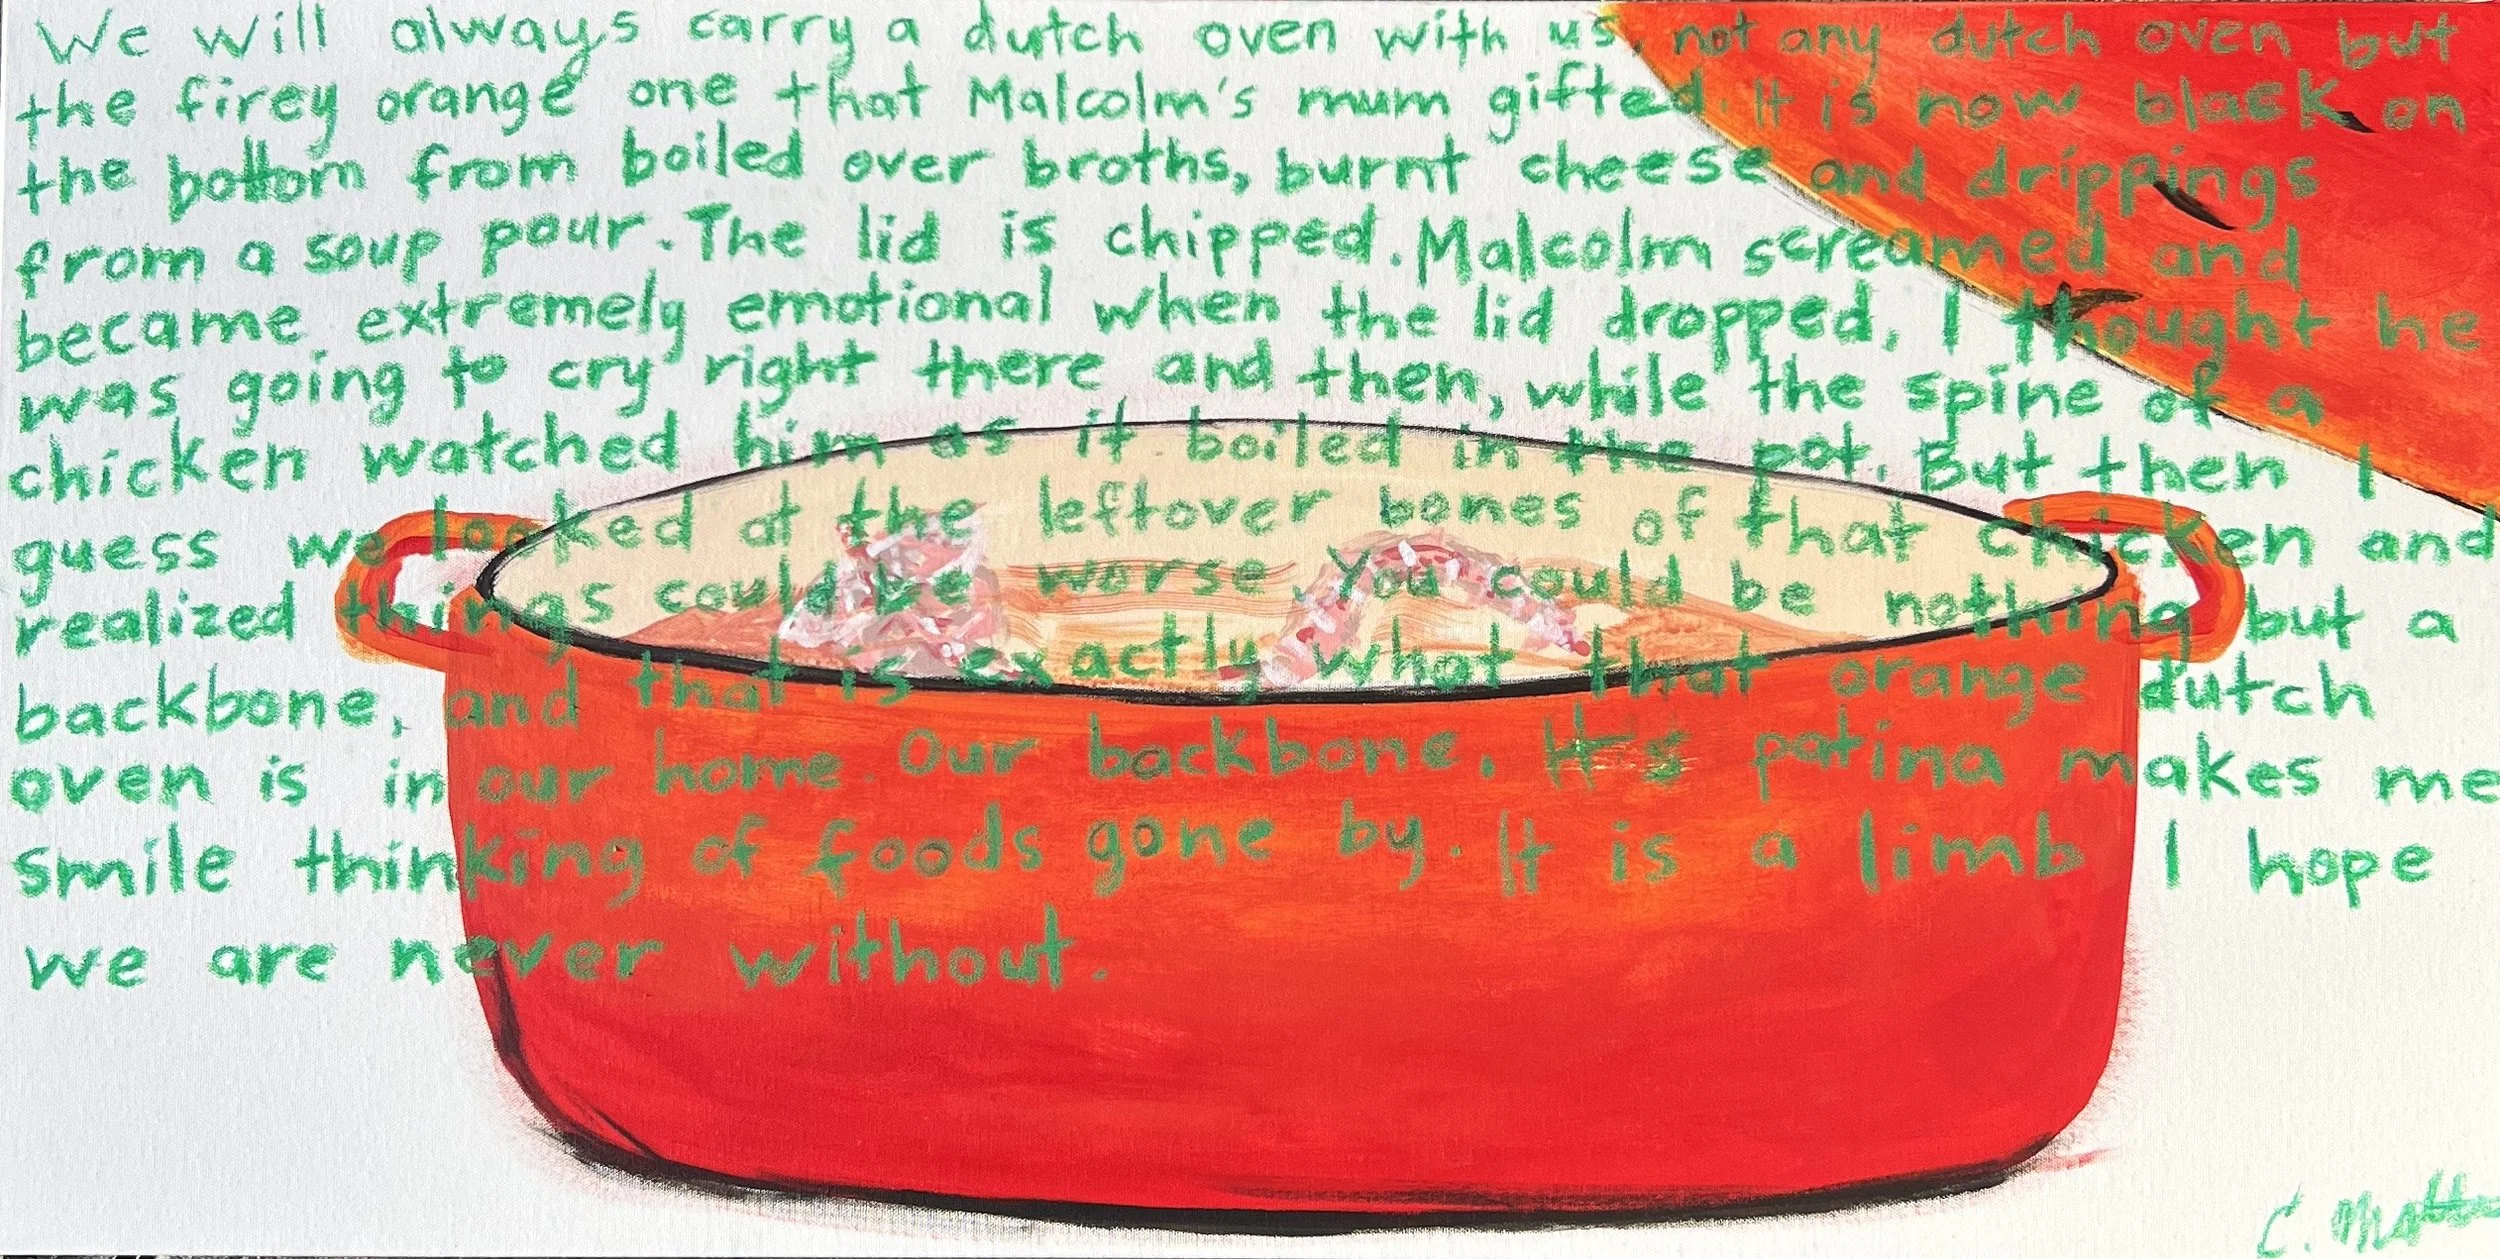 We will always carry a dutch oven with us, not any dutch oven but
the firey orange one that Malcolm's mum gifted. It is now black on
the bottom from boiled over broths, burnt cheese and drippings
from a soup pour. The lid is chipped. Malcolm screamed and
became extremely emotional when the lid dropped, I thought he
was going to cry right there and then, while the spine of a
chicken watched him as it boiled in the pot. But then I
guess we looked at the leftover bones of that chicken and
realized things could be worse. You could be nothing but a
backbone, and that is exactly what that orange dutch
oven is in our home. Our backbone. It's patina makes me
smile thinking of foods gone by. It is a limb I hope
we are never without.
C.